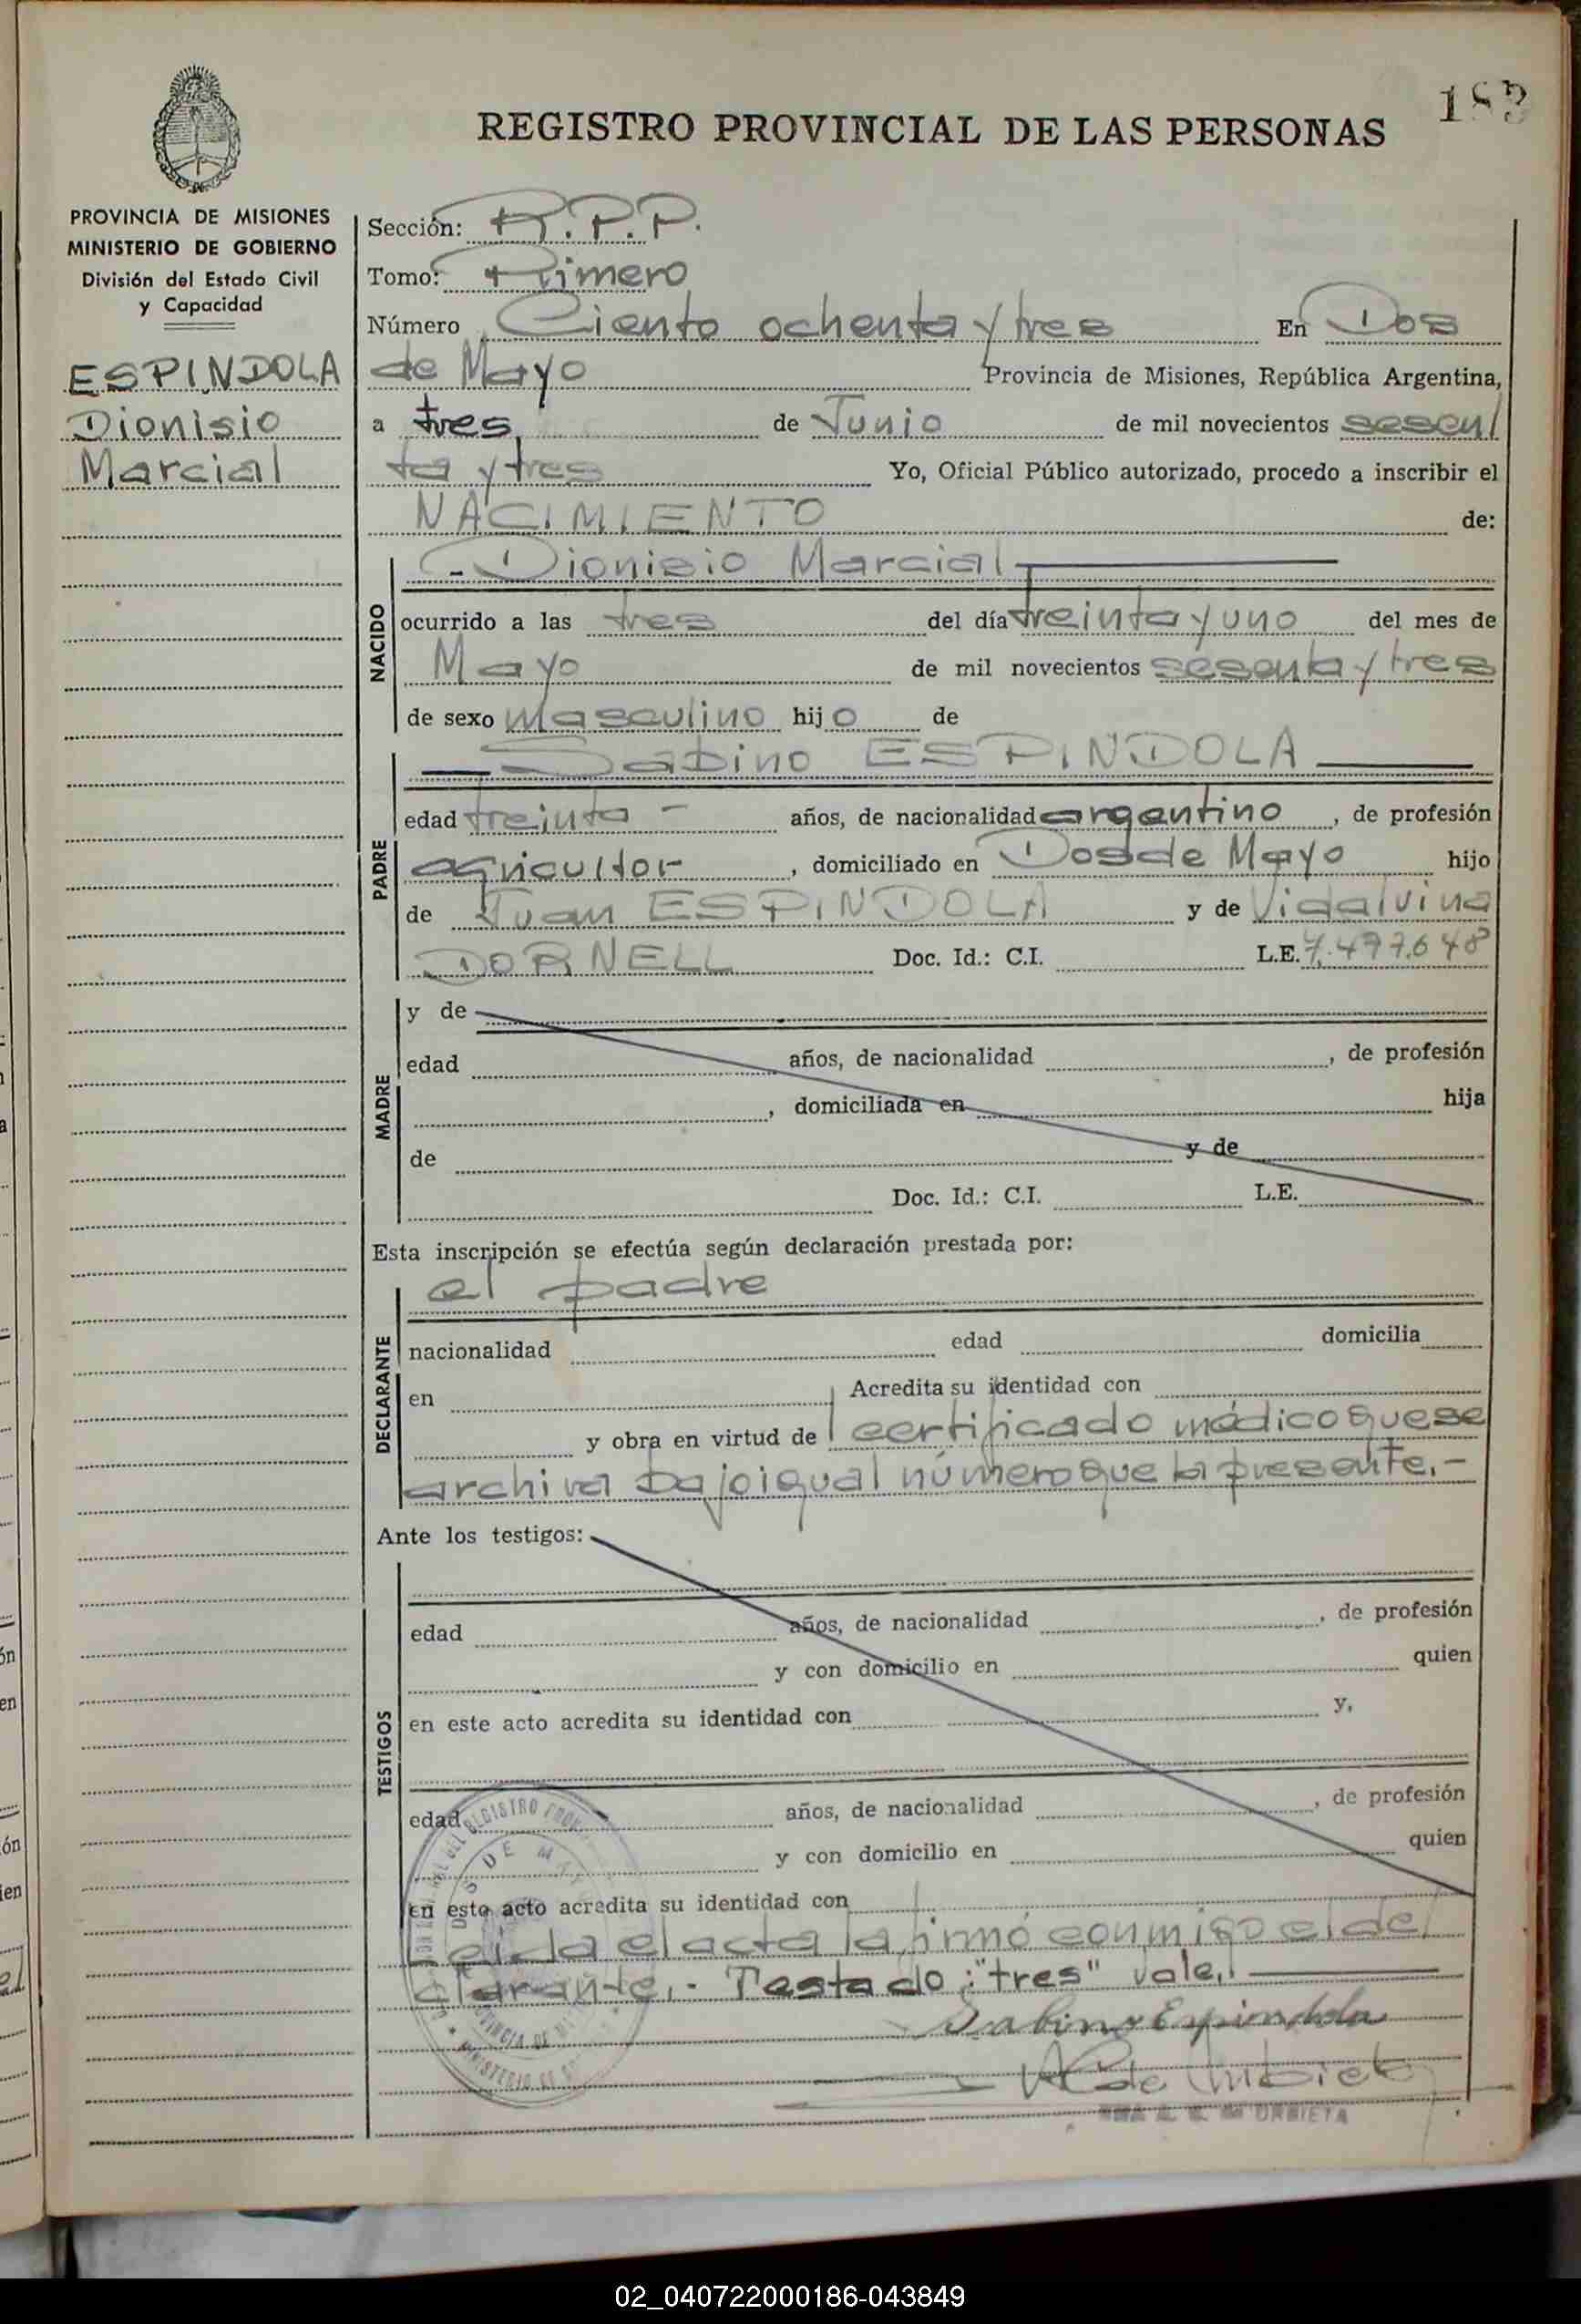 183
REGISTRO PROVINCIAL DE LAS PERSONAS
PROVINCIA DE MISIONES
MINISTERIO DE GOBIERNO
División del Estado Civil
y Capacidad
ESPINDOLA
Dionisio
Marcial
Sección: R.P.P.
Tomo: Primero
Número Ciento ochenta y tres En Dos
de Mayo Provincia de Misiones, República Argentina,
a tres de Junio de mil novecientos sesen
ta y tres Yo, Oficial Público autorizado, procedo a inscribir el
NACIMIENTO de:
NACIDO
-Dionisio Marcial
ocurrido a las tres del día treinta y uno del mes de
Mayo de mil novecientos sesenta y tres
de sexo masculino hijo de
PADRE
Sabino ESPINDOLA
edad treinta - años, de nacionalidad argentino, de profesión
agricultor, domiciliado en Dos de Mayo hijo
de Juan ESPINDOLA y de Vidalvina
DORNELL Doc. Id.: C.I. L.E. 7.497.648
MADRE
y de
edad años, de nacionalidad , de profesión
, domiciliada en hija
de y de
Doc. Id.: C.I. L.E.
Esta inscripción se efectúa según declaración prestada por:
DECLARANTE
el padre
nacionalidad edad domicilia
en Acredita su identidad con
y obra en virtud de certificado médico que se
archiva bajo igual número que la presente.-
Ante los testigos:
TESTIGOS
edad años, de nacionalidad , de profesión
y con domicilio en quien
en este acto acredita su identidad con y,
edad años, de nacionalidad , de profesión
y con domicilio en quien
en este acto acredita su identidad con
Leida el acta la firmó conmigo el de
clarante.- Testado: "tres" vale.
Sabino Espindola
URBIETA
02_040722000186-043849